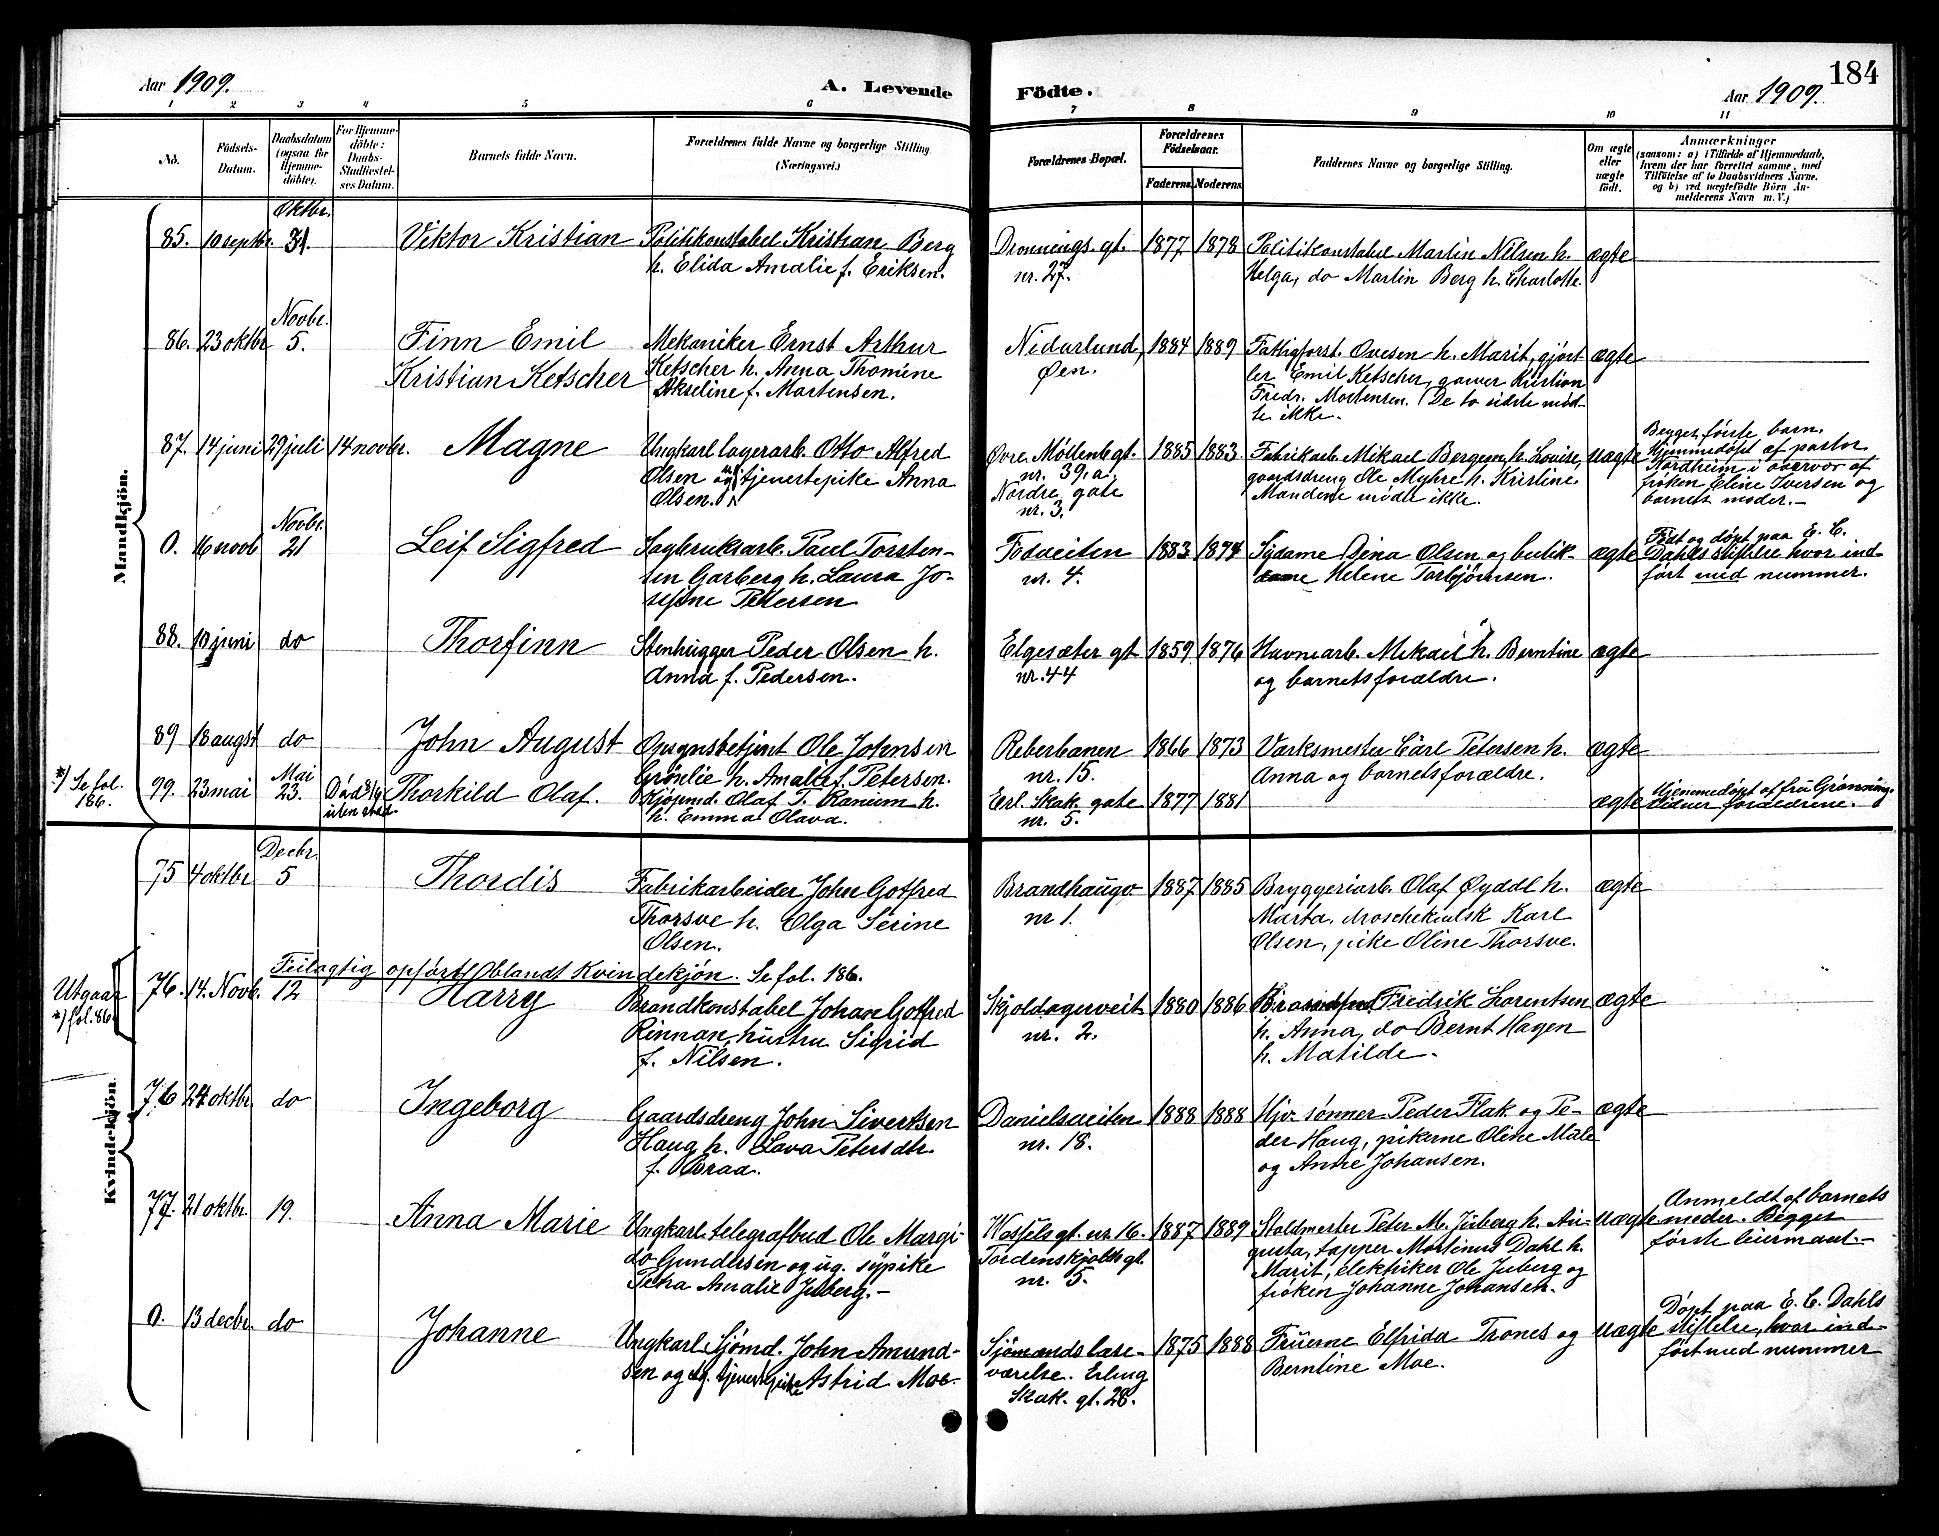 184
Aar 1909.
A. Levende Födte.
Aar 1909.
1 2 3 4 5 6 7 8 9 10 11
No.
Födsels-Datum.
Daabsdatum (ogsaa for Hjemme-döbte).
For Hjemme-döbte: Daabs-Stadfæstel-ses Datum.
Barnets fulde Navn.
Forældrenes fulde Navne og borgerlige Stilling (Næringsvei.)
Forældrenes Bopæl.
Forældrenes Födselsaar.
Faderens. Moderens.
Faddernes Navne og borgerlige Stilling.
Om ægte eller uægte födt.
Anmærkninger
(saasom: a) i Tilfælde af Hjemmedaab,
hvem der har forrettet samme, med
Tilföielse af to Daabsvidners Navne.
og b) ved uægtefödte Börn An-
melderens Navn m. V.)
Mandkjön.
85. 10 septbr. Oktbr. 31. Viktor Kristian
Politikonstabel Kristian Berg
h. Elida Amalie f. Eriksen.
Dronnings. gt.
nr. 27.
1877 1878
Politikonstabel Martin Nilsen h.
Helga, do Martin Berg h. Charlotte.
ægte
86. 23 oktbr Novbr. 5. Finn Emil
Kristian Ketscher
Mekaniker Ernst Arthur
Ketscher h. Anna Thomine
Akseline f. Martensen.
Nidarlund,
Øen.
1884 1889
Fattigforst. Ovesen h. Marit, gjørt
ler Emil Ketscher, garver Kristian
Fredr. Mortensen. (De to sidste mød-
te ikke.
ægte
87. 14 juni 29 juli 14 novbr. Magne
Ungkarl lagerarb. Otto Alfred
Olsen og ug. tjenestepike Anna
Olsen.
Øvre Møllenb. gt.
nr. 39. a.
Nordre gate
nr. 3.
1885 1883
Fabrikarb. Mikael Bergem h. Louise,
gaardsdreng Ole Myhre h. Kristine.
Mændene mødte ikke.
uægte
Begges første barn.
Hjemmedøpt af pastor
Nordheim i overvær af
frøken Eline Iversen og
barnets moder.-
0. 16 novb Novbr. 21 Leif Sigfred
Sagbruksarb. Paul Torsten-
sen Garberg h. Laura Jo-
sefine Petersen
Fodveiten
nr. 4.
1883 1874
Sydame Dina Olsen og butik-
dame Helene Torbjørnsen.
ægte
Født og døpt paa E. C.
Dahls stiftelse hvor ind-
ført med nummer.
88. 10 juni do Thorfinn
Stenhugger Peder Olsen h.
Anna f. Pedersen.
Elgesæter gt
nr. 44
1859 1876
Havnearb. Mikael h. Berntine
og barnets forældre.
ægte
89 18 augst do John August
Opsynsbetjent Ole Johnsen
Grönlie h. Amalie f. Petersen.
Reberbanen
nr. 15.
1866 1873
Værksmester Carl Petersen h.
Anna og barnets forældre.
ægte
*) Se fol.
186.
99. 23 mai Mai 23. Død
uten stad. Thorkild Olaf.
Kjøpmd. Olaf T. Ranium h.
h. Emma Olava.
Erl. Skak. gate
nr. 5.
1877 1881
ægte
Hjemmedøpt af fru Grønning.
Vidner forældrene.
Kvindekjön.
75 4 oktbr Decbr. 5 Thordis
Fabrikarbeider John Gotfred
Thorsve h. Olga Serine
Olsen.
Brandhaugv
nr 1.
1887 1885
Bryggeriarb. Olaf Øyddl h.
Marta, Karl
Olsen, pike Oline Thorsve.
ægte
Feilagtig opført iblandt Kvindekjøn. Se fol. 186.
Utgaar
*) fol. 86.
76. 14. Novb. 12 Harry
Brandkonstabel Johan Gotfred
Rinnan, hustru Sigrid
f. Nilsen.
Skjoldagerveit
nr. 2.
1880 1886
Fredrik Lorentsen
h. Anna, do Bernt Hagen
h. Matilde.
ægte
76 24 oktbr. do Ingeborg
Gaardsdreng John Sivertsen
Haug h. Lava Petersdtr.
f. Braa.
Danielsveiten
nr. 18.
1888 1888
Hjv. sønner Peder Flak og Pe-
der Haug, pikerne Oline Mule
og Anne Johansen.
ægte
77. 21 oktbr. 19. Anna Marie
Ungkarl telegrafbud Ole Margi-
do Gundersen og ug. sypike
Petra Amalie Juberg.-
gt. nr 16.
Tordenskjolds gt.
nr. 5.
1887 1889
Staldmester Peter M. Juberg h. Au-
gusta, tapper Martinus Dahl h.
Marit, elektriker Ole Juberg og
frøken Johanne Johansen.
uægte
Anmeldt af barnets
moder. Begges
første leiermaal.-
0. 13 decbr. do Johanne
Ungkarl Sjømd. John Amund-
sen og ug. tjenestepike Astrid Moe.
Sjömands læse-
værelse. Erling
Skak. gt. 28.
1875 1888
Fruerne Elfrida Trones og
Berntine Moe.
uægte
Døpt paa E. C. Dahls
stiftelse, hvor ind-
ført med nummer